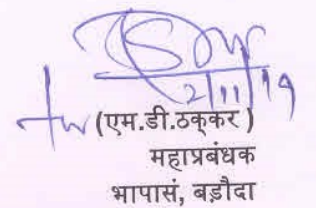 2/11/19
(एम.डी.ठक्कर )
महाप्रबंधक
भापासं, बड़ौदा